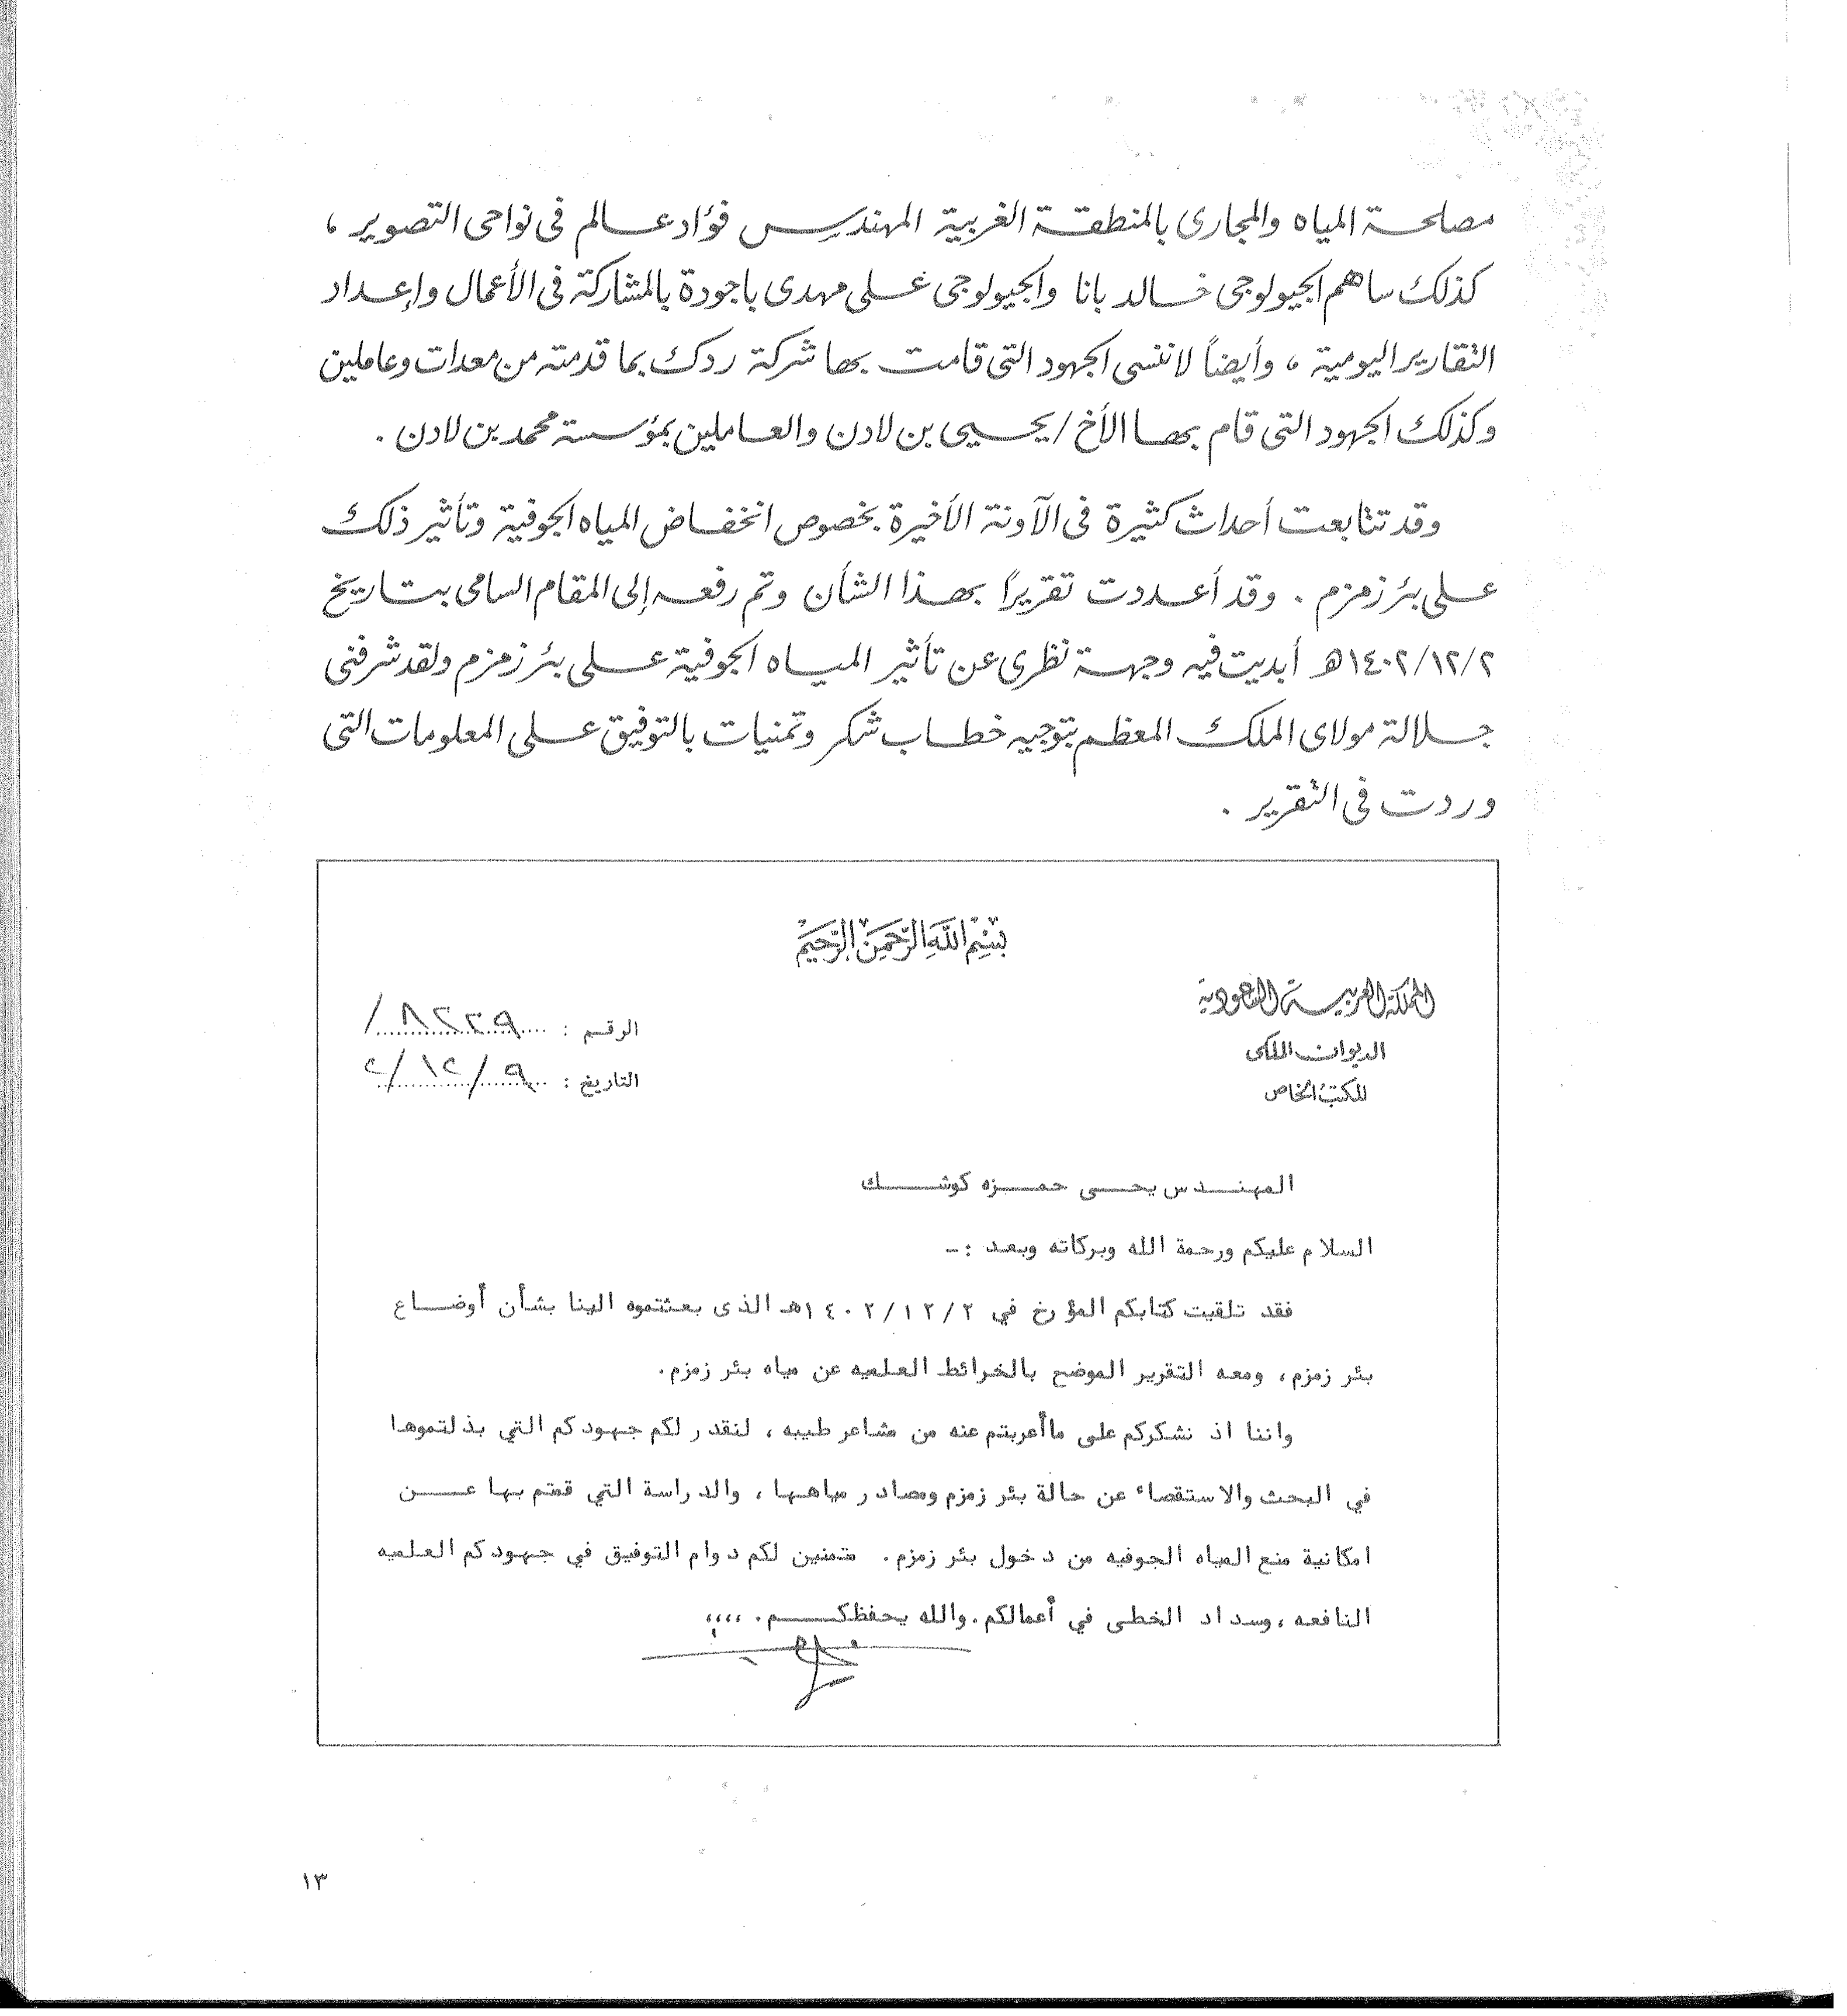 مصلحة المياه والمجارى بالمنطقة الغربية المهندس فؤاد عالم فى نواحى التصوير ،
كذلك ساهم الجيولوجى خالد بانا والجيولوجى على مهدى باجودة بالمشاركة فى الأعمال وإعداد
التقارير اليومية ، وأيضاً لاننسى الجهود التى قامت بها شركة ردك بما قدمته من معدات وعاملين
وكذلك الجهود التى قام بها الأخ / يحيى بن لادن والعاملين بمؤسسة محمد بن لادن .
وقد تتابعت أحداث كثيرة فى الآونة الأخيرة بخصوص انخفاض المياه الجوفية وتأثير ذلك
على بئر زمزم . وقد أعددت تقريرًا بهذا الشأن وتم رفعه إلى المقام السامى بتاريخ
١٤٠٢/١٢/٢هـ أبديت فيه وجهة نظرى عن تأثير المياه الجوفية على بئر زمزم ولقد شرفنى
جلالة مولاى الملك المعظم بتوجيه خطاب شكر وتمنيات بالتوفيق على المعلومات التى
وردت فى التقرير .
بسم الله الرحمن الرحيم
المملكة العربية السعودية
الديوان الملكى
المكتب الخاص
الرقم : ٨٢٣٩/
التاريخ : ٩/١٢/٢
المهندس يحيى حمزه كوشك
السلام عليكم ورحمة الله وبركاته وبعد :-
فقد تلقيت كتابكم المؤرخ في ١٤٠٢/١٢/٢هـ الذى بعثتموه الينا بشأن أوضاع
بئر زمزم، ومعه التقرير الموضح بالخرائط العلميه عن مياه بئر زمزم.
واننا اذ نشكركم على ماأعربتم عنه من مشاعر طيبه ، لنقدر لكم جهودكم التي بذلتموها
في البحث والاستقصاء عن حالة بئر زمزم ومصادر مياهها ، والدراسة التي قمتم بها عن
امكانية منع المياه الجوفيه من دخول بئر زمزم. متمنين لكم دوام التوفيق في جهودكم العلميه
النافعه ، وسداد الخطى في أعمالكم. والله يحفظكم. ،،،،
١٣